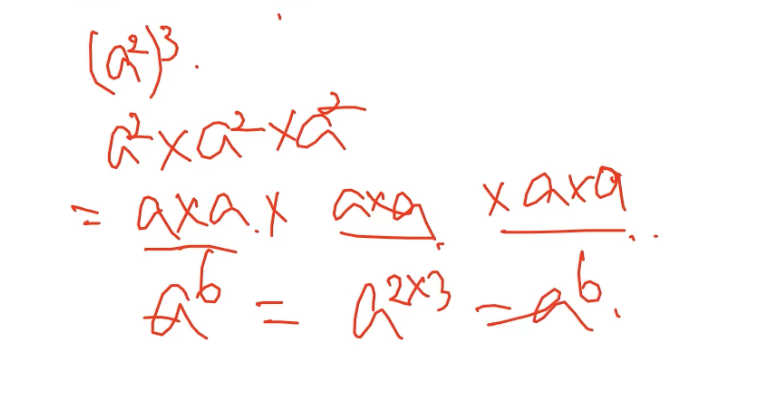 (a²)³.
a² × a² × a²
= a × a . × a × a × a × a .
a⁶ = a²ˣ³ = a⁶.